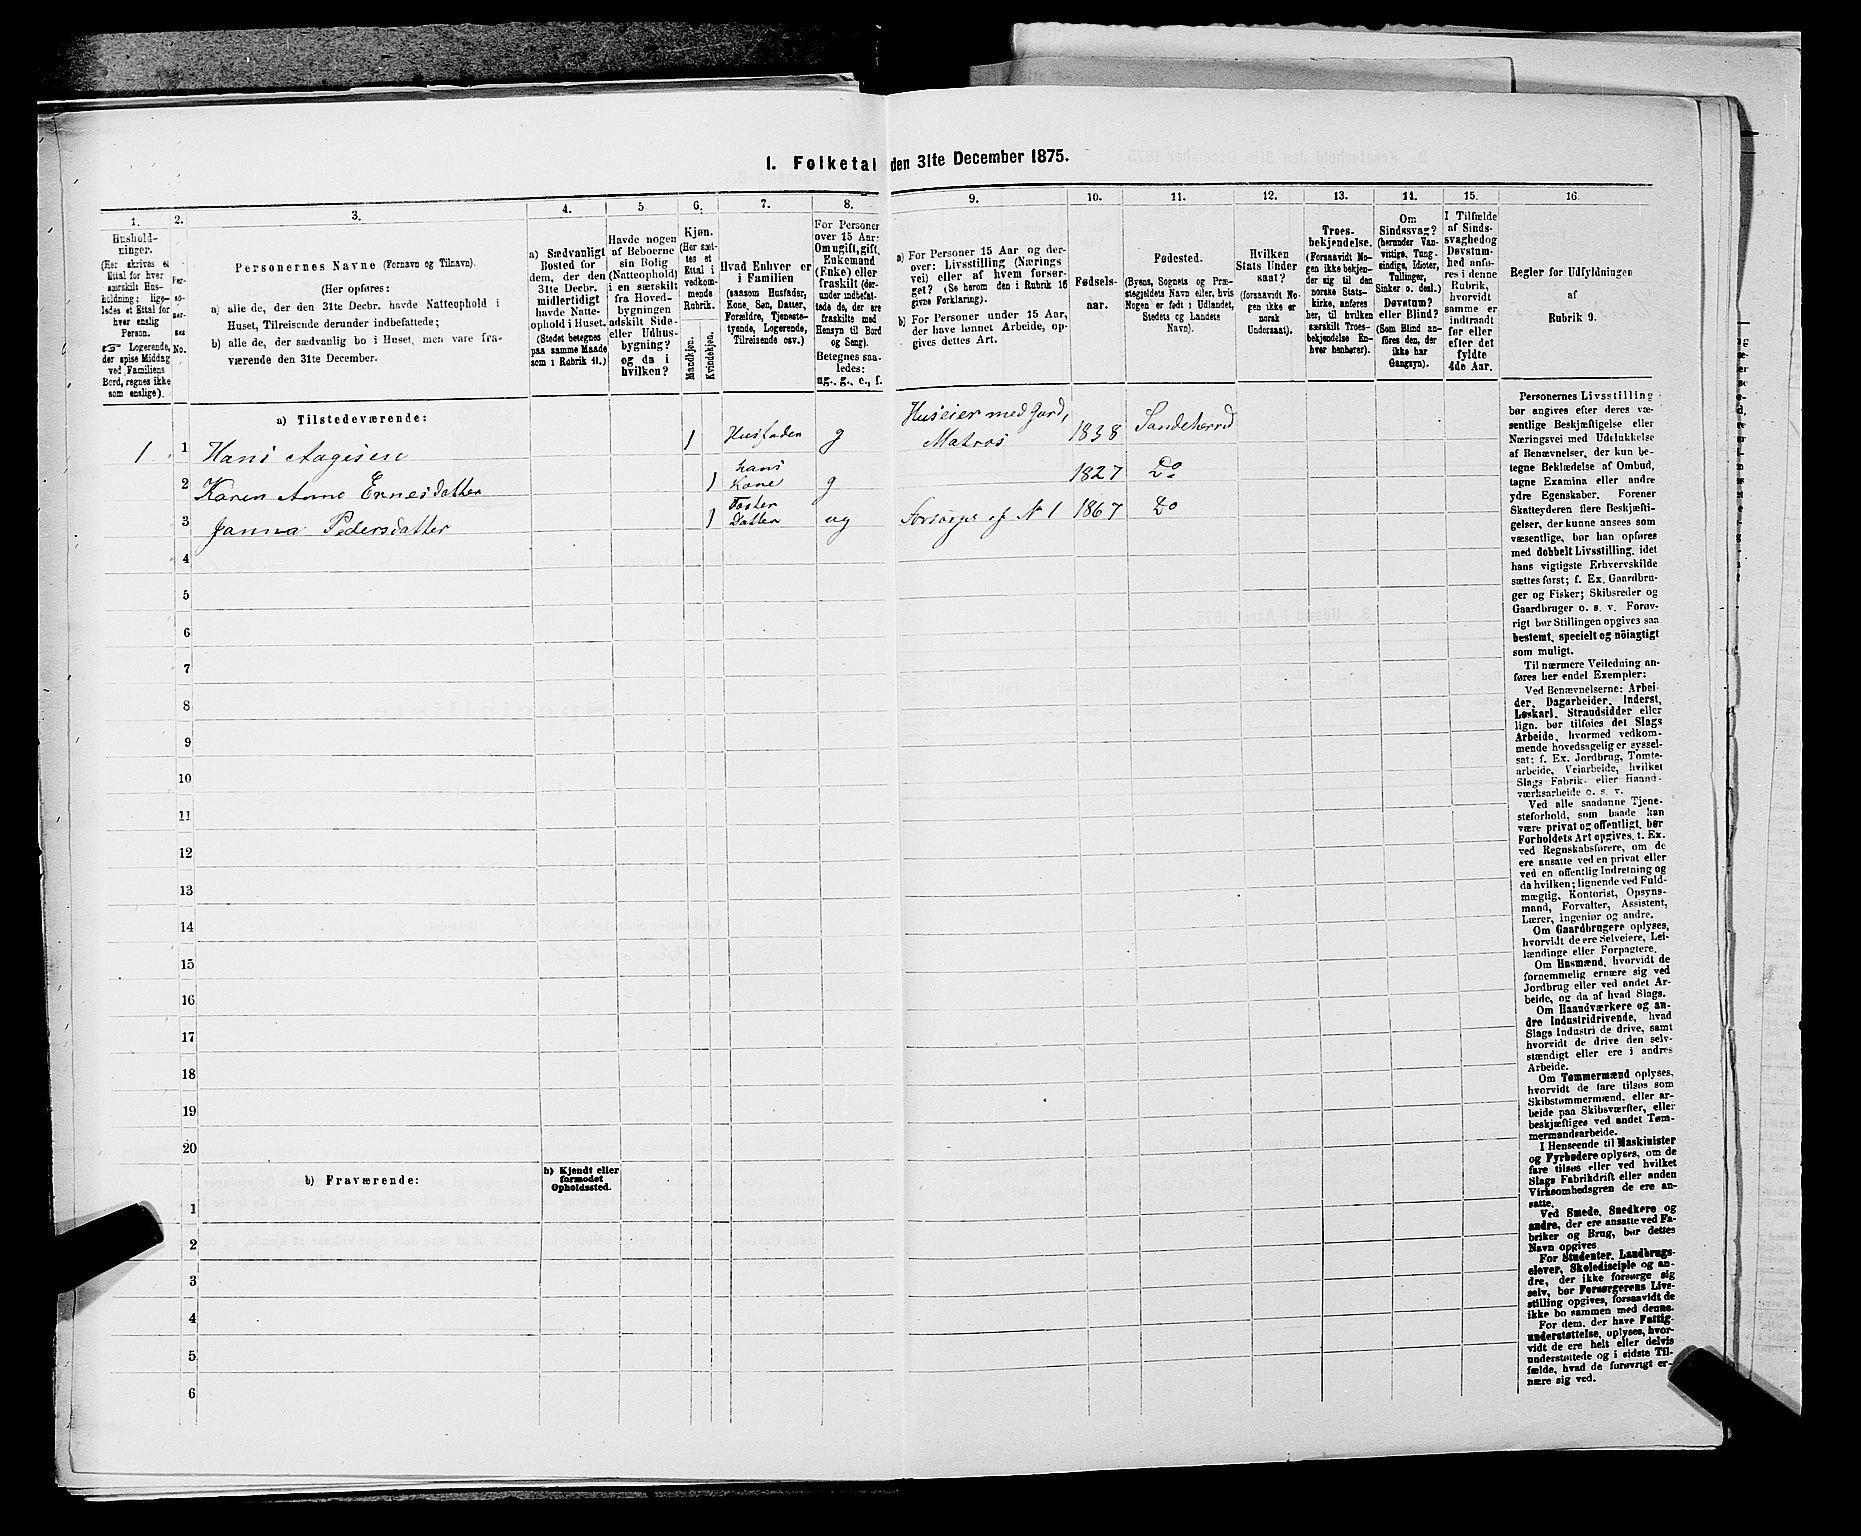 1. Folketal den 31te December 1875.
1.
Hushold-
ninger.
(Her skrives et
Ettal for hver
særskilt Hus-
holdning; lige-
ledes et Ettal for
hver enslig
Person.
☞ Logerende,
der spise Middag
ved Familiens
Bord, regnes ikke
som enslige).
2.
Per-
so-
ner-
nes
No.
3.
Personernes Navne (Fornavn og Tilnavn).
(Her opføres:
a) alle de, der den 31te Decbr. havde Natteophold i
Huset, Tilreisende derunder indbefattede;
b) alle de, der sædvanlig bo i Huset, men vare fra-
værende den 31te December.
4.
a) Sædvanligt
Bosted for
dem, der den
31te Decbr.
midlertidigt
havde Natte-
ophold i Huset.
(Stedet betegnes
paa samme Maade
som i Rubrik 11.)
5
Havde nogen
af Beboerne
sin Bolig
(Natteophold)
i en særskilt
fra Hoved-
bygningen
adskilt Side-
eller Udhus-
bygning?
og da i
hvilken?
6.
Kjøn.
(Her sæt-
tes et
Ettal i
vedkom-
mende
Rubrik.
Mandkjøn.
Kvindekjøn.
7.
Hvad Enhver er
i Familien
(saasom Husfader,
Kone, Søn, Datter,
Forældre, Tjeneste-
tyende, Logerende,
Tilreisende osv.)
8.
For Personer
over 15 Aar:
Om ugift, gift,
Enkemand
(Enke) eller
fraskilt (der-
under indbefat-
tede de, der ere
fraskilte med
Hensyn til Bord
og Seng).
Betegnes saa-
ledes:
ug., g., e., f.
9.
a) For Personer 15 Aar og der-
over: Livsstilling (Nærings
vei) eller af hvem forsør-
get? (Se herom den i Rubrik 16
givne Forklaring).
b) For Personer under 15 Aar,
der have lønnet Arbeide, op-
gives dettes Art.
10.
Fødsels-
aar.
11.
Fødested.
(Byens, Sognets og Præ-
stegjeldets Navn eller, hvis
Nogen er født i Udlandet,
Stedets og Landets
Navn).
12.
Hvilken
Stats Under
saat?
(forsaavidt No-
gen ikke er
norsk
Undersaat).
13.
Troes-
bekjendelse.
(Forsaavidt No-
gen ikke bekjen-
der sig til den
norske Stats-
kirke, anføres
her, til hvilken
særskilt Troes-
bekjendelse En-
hver henhører).
14.
Om
Sindssvag?
(herunder Van-
vittige, Tung-
sindige, Idioter,
Tullinger,
Sinker o. desl.)
Døvstum?
eller Blind?
(Som Blind an-
føres den, der
ikke har
Gangsyn).
15.
I Tilfælde
af Sinds-
svaghed og
Døvstum-
hed anfø-
res i denne
Rubrik,
hvorvidt
samme er
indtraadt
før eller
efter det
fyldte
4de Aar.
16.
Regler for Udfyldningen
af
Rubrik 9.
a) Tilstedeværende:
1 1 Hans Aagesen 1 Husfader g Huseier med Jord, Matros 1838 Sandeherred
2 Karen Anne Ernesdatter 1 hans Kone g 1827 Do
3 Janna Pedersdatter 1 Foster Datter ug Forsørges af No 1 1867 Do
4
5
6
7
8
9
10
11
12
13
14
15
16
17
18
19
20
b) Fraværende:
b) Kjendt eller
formodet
Opholdssted.
1
2
3
4
5
6
Personernes Livsstilling
bør angives efter deres væ-
sentlige Beskjæftigelse eller
Næringsvei med Udelukkelse
af Benævnelser, der kun be-
tegne Beklædelse af Ombud,
tagne Examina eller andre
ydre Egenskaber. Forener
Skatteyderen flere Beskjæfti-
gelser, der kunne ansees som
væsentlige, bør han opføres
med dobbelt Livsstilling, idet
hans vigtigste Erhvervskilde
sættes først; f. Ex. Gaardbru-
ger og Fisker; Skibsreder og
Gaardbruger o. s. v. Forøv-
rigt bør Stillingen opgives saa
bestemt, specielt og nöiagtigt
som muligt.
Til nærmere Veiledning an-
føres her endel Exempler:
Ved Benævnelserne: Arbei-
der, Dagarbeider, Inderst,
Løskarl, Strandsidder eller
lign. bør tilføies det Slags
Arbeide, hvormed vedkom-
mende hovedsagelig er syssel-
sat; f. Ex. Jordbrug, Tomte-
arbeide, Veiarbeide, hvilket
Slags Fabrik- eller Haand-
værksarbeide o. s. v.
Ved alle saadanne Tjene-
steforhold, som baade kan
være privat og offentligt, bør
Forholdets Art opgives, t. Ex.
ved Regnskabsførere, om de
ere ansatte ved en privat eller
ved en offentlig Indretning og
da hvilken; lignende ved Fuld-
mægtig, Kontorist, Opsyns-
mand, Forvalter, Assistent,
Lærer, Ingeniør og andre.
Om Gaardbrugere oplyses,
hvorvidt de ere Selveiere, Lei-
lændinge eller Forpagtere.
Om Husmænd, hvorvidt de
fornemmelig ernære sig ved
Jordbrug eller ved andet Ar-
beide, og da af hvad Slags.
Om Haandværkere og an-
dre Industridrivende, hvad
Slags Industri de drive, samt
hvorvidt de drive den selv-
stændigt eller ere i andres
Arbeide.
Om Tømmermænd oplyses,
hvorvidt de fare tilsøs som
Skibstømmermænd, eller ar-
beide paa Skibsværfter, eller
beskjæftiges ved andet Tøm-
mermandsarbeide.
I Henseende til Maskinister
og Fyrbødere oplyses, om de
fare tilsøs eller ved hvilket
Slags Fabrikdrift eller anden
Virksomhedsgren de ere an-
satte.
Ved Smede, Snedkere og
andre, der ere ansatte ved Fa-
briker og Brug, bør dettes
Navn opgives
For Studenter, Landbrugs-
elever, Skoledisciple og an-
dre, der ikke forsørge sig
selv, bør Forsørgerens Livs-
stilling opgives, forsaavidt de
ikke bo sammen med denne.
For dem, der have Fattig-
understøttelse, oplyses, hvor-
vidt de ere helt eller delvis
understøttede og i sidste Til-
fælde, hvad de forøvrigt er-
nære sig ved.